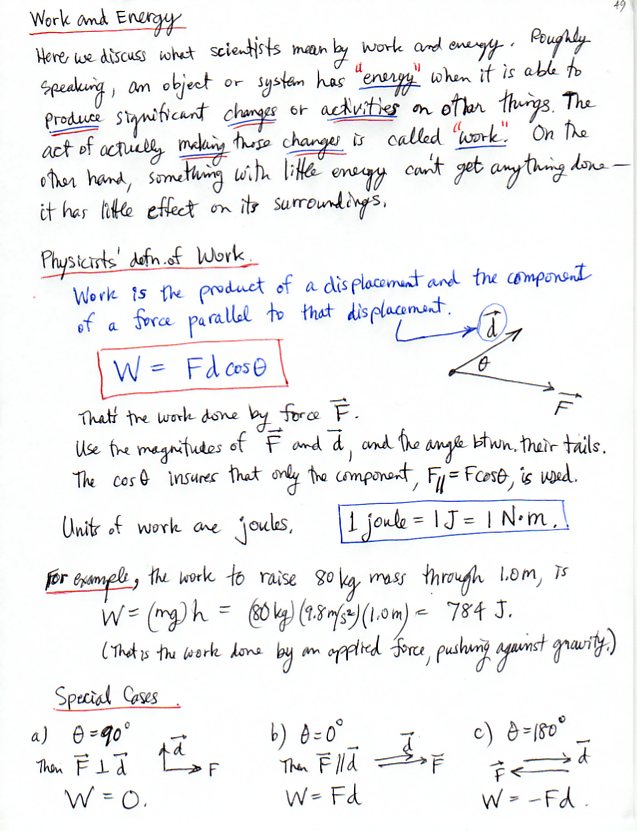 49
Work and Energy
Here we discuss what scientists mean by work and energy. Roughly
speaking, an object or system has "energy" when it is able to
produce significant changes or activities on other things. The
act of actually making those changes is called "work". On the
other hand, something with little energy can't get anything done —
it has little effect on its surroundings.
Physicists' defn. of Work.
Work is the product of a displacement and the component
of a force parallel to that displacement.
W = Fd cosθ
d⃗
θ
F⃗
That's the work done by force F⃗.
Use the magnitudes of F⃗ and d⃗, and the angle btwn. their tails.
The cosθ insures that only the component, F∥ = Fcosθ, is used.
Units of work are joules. 1 joule = 1 J = 1 N·m.
For example, the work to raise 80 kg mass through 1.0m, is
W = (mg)h = (80 kg)(9.8 m/s²)(1.0m) = 784 J.
(That is the work done by an applied force, pushing against gravity.)
Special Cases.
a) θ = 90°
d⃗
F
Then F⃗ ⊥ d⃗
W = 0.
b) θ = 0°
d⃗
F⃗
Then F⃗ ∥ d⃗
W = Fd
c) θ = 180°
d⃗
F⃗
W = -Fd.